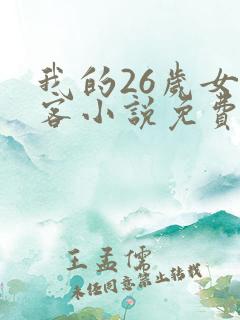 我的26歲女
客小說免費
王孟儒
未经同意禁止转载